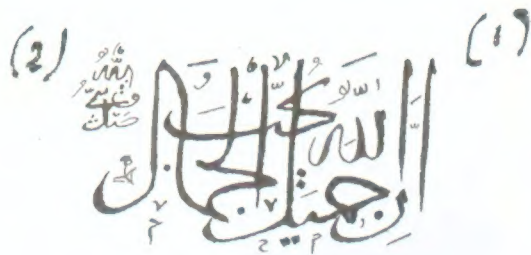 (1)
إِنَّ اللّٰهَ جَمِيلٌ يُحِبُّ الْجَمَالَ
(2)
اللّٰه